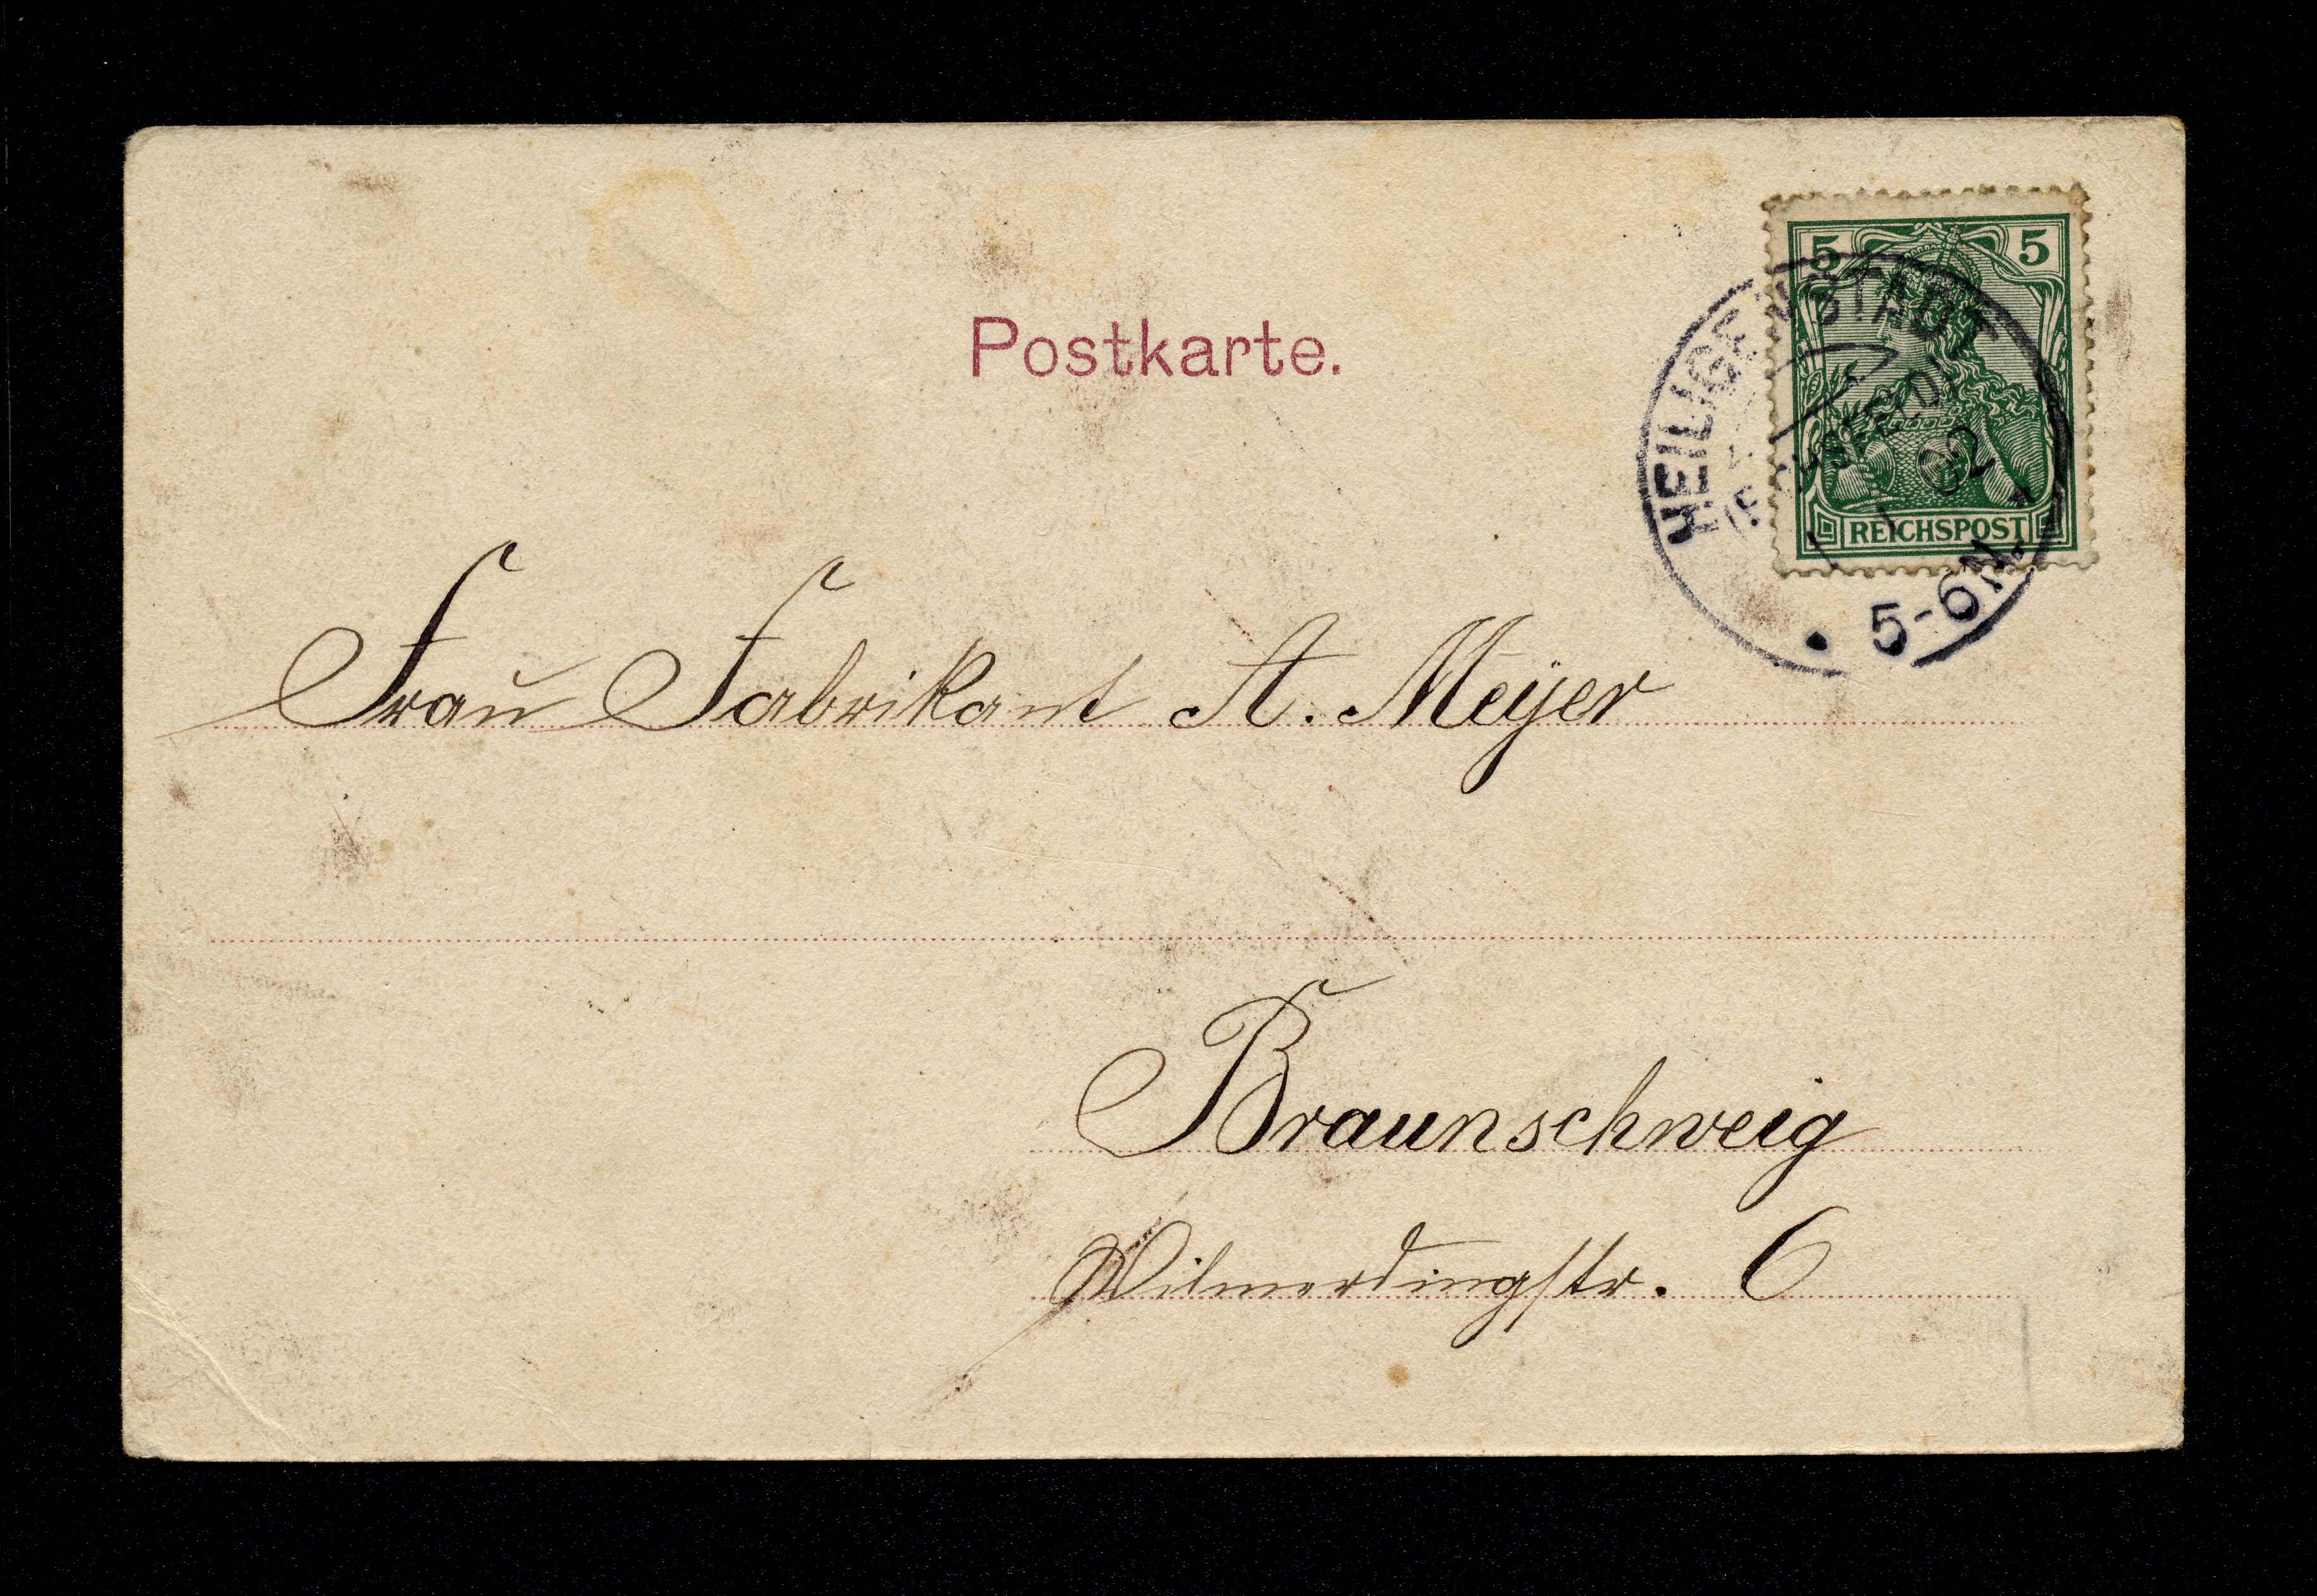 5 5
Postkarte.
HEILIGENSTADT
(EICHSFELD)
02
REICHSPOST
5-6N.
Frau Fabrikant A. Meyer
Braunschweig
Wilmerdingstr. 6